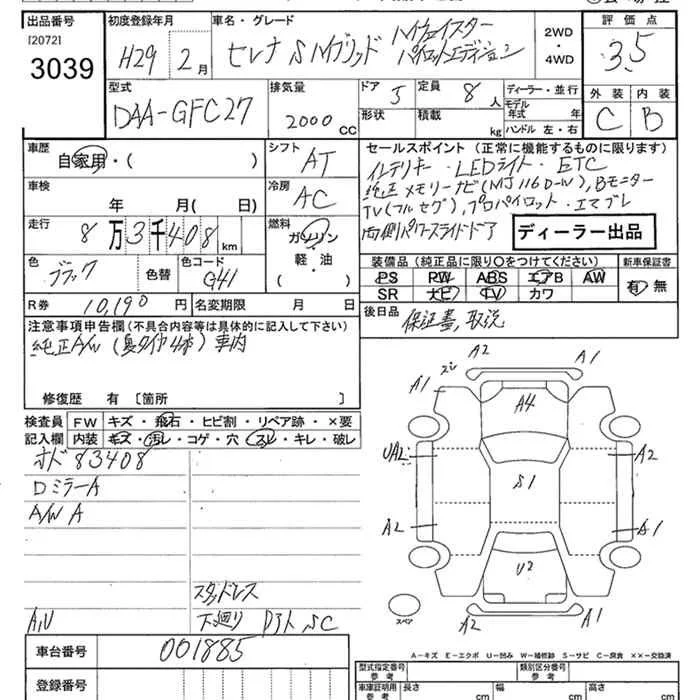 出品番号 初度登録年月 車名・グレード 評価点
[2072]
3039
H29 2月
セレナ Sハイブリッド ハイウェイスター
パイロットエディション
2WD
・
4WD
3.5
型式 排気量 ドア 定員 ディーラー・並行 外装 内装
DAA-GFC27 2000 CC
5 8人
モデル年式 年
形状 積載 kg ハンドル 左・右
C B
車歴 シフト セールスポイント(正常に機能するものに限ります)
自家用・( ) AT
インテリキー・LEDライト・ETC
車検 冷房
年 月( 日) AC
純正メモリーナビ(MJ116D-W), Bモニター
TV(フルセグ), プロパイロット・エマブレ
走行 燃料
8万3千408km ガソリン
軽・油
( )
両側パワースライドドア ディーラー出品
色 色コード
ブラック 色替 G41
装備品(純正品に限り○をつけてください) 新車保証書
PS PW ABS エアB AW
SR ナビ TV カワ
有・無
R券 10,190円 名変期限 月 日
後日品 保証書, 取説
注意事項申告欄(不具合内容等は具体的に記入して下さい)
純正A/W 車内
修復歴 有〔箇所 〕
検査員 FW キズ・飛石・ヒビ割・リペア跡・×要
記入欄 内装 キズ・汚レ・コゲ・穴・スレ・キレ・破レ
オド83408
DミラーA
A/W A
スタッドレス
下廻り
SC
A2
A1
A1
A4
UAL
A2
S1
A2
A1
U2
A2
A1
スペア
車台番号 001885
登録番号
A-キズ E-エクボ U-凹み W-補修跡 S-サビ C-腐食 ××-交換済
型式指定番号 参考 類別区分番号 参考
車庫証明用 参考 長さ cm 幅 cm 高さ cm